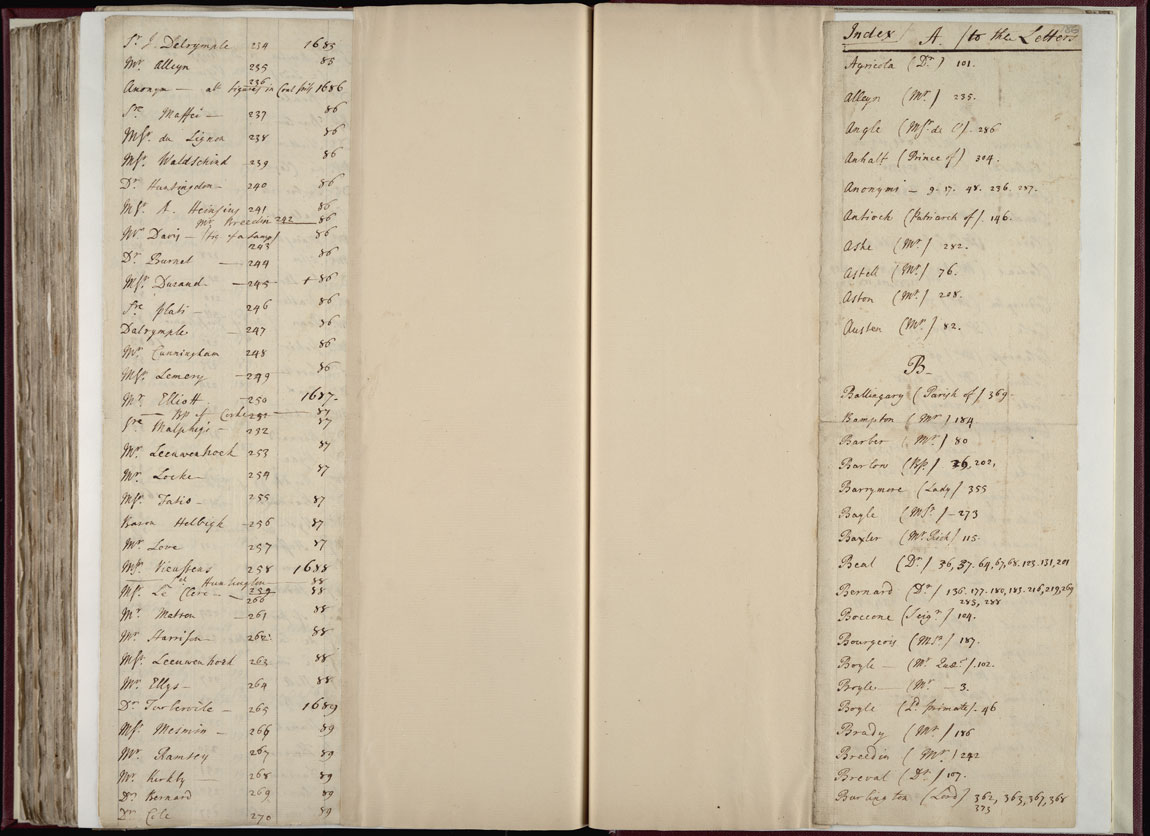 Sr. J. Dalrymple 234 1685
Mr. Alleyn 235 85
Anonym — abt figures in 236 1686
Sre. Maffei — 237 86
Msr. du Lignon 238 86
Msr. Waldschind 239 86
Dr. Huntingdon — 240 86
Msr. A. Heinsius 241 86
Mr. Breedin 242 — 86
Mr. Davis — of a Lamp/ 243 86
Dr. Burnet — 244 86
Msr. Durand — 245 + 86
Sre. Plati — 246 86
Dalrymple 247 86
Mr. Cunningham 248 86
Msr. Lemery — 249 86
Mr. Elliott — 250 1687 —
— Bp of Corke 251 — 87
Sre Malphigi — 252 87
Mr. Leeuwenhoek 253 87
Mr. Locke — 254 87
Msr. Fatio — 255 87
Baron Helbigh — 256 87
Mr. Love 257 87
Msr. Vieussens 258 1688
— Huntington — 259 88
Msr. Le Clerc — 260 88
Mr. Matron — 261 88
Mr. Harrison — 262 88
Msr. Leeuwenhoek 263 88
Mr. Ellys — 264 88
Dr. Turbervile — 265 1689
Msr. Mesmin — 266 89
Mr. Ramsey 267 89
Mr. Kirkby — 268 89
Dr. Bernard 269 89
Dr. Cole 270 89
Index / A. / to the Letters
Agricola (Dr.) 101.
Alleyn (Mr./ 235.
Angle (Msr. de l'/. 286
Anhalt (Prince of) 304.
Anonymi — 9. 17. 48. 236. 287.
Antioch (Patriarch of/. 146.
Ashe (Mr./ 282.
Astell (Mr./ 76.
Aston (Mr./ 208.
Austen (Mr./ 82.
B—
Ballingary (Parish of/ 369.
Bampton (Mr/ 184.
Barber (Mr./ 80
Barlow (Bp./ 26, 202,
Barrymore (Lady/ 355
Bayle (Msr./ — 273
Baxter (Mr. Rich/ 115.
Beal (Dr./ 36, 37. 64, 67, 68. 123. 131, 201
Bernard (Dr./ 136. 177. 180, 183. 216, 219, 269
285, 288
Boccone (Seigr./ 104.
Bourgeois (Msr./ 187.
Boyle — (Mr. /. 102.
Boyle — (Mr. — 3.
Boyle (Ld. primate/. 46
Brady (Mr/ 186
Breedin (Mr./ 242
Breval (Dr./ 107.
Burlington (Lord/ 362, 363, 367, 368
373